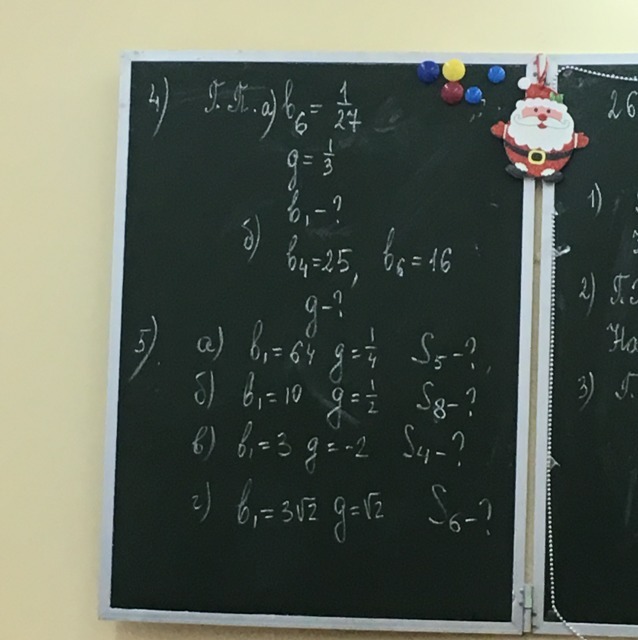 4) Г.П. а) b₆ = 1/27
g = 1/3
b₁ - ?
б)
b₄ = 25, b₆ = 16
g - ?
5) а) b₁ = 64 g = 1/4 S₅ - ?
б) b₁ = 10 g = 1/2 S₈ - ?
в) b₁ = 3 g = -2 S₄ - ?
г) b₁ = 3√2 g = √2 S₆ - ?
26
1)
2) П.
На
3) Г.